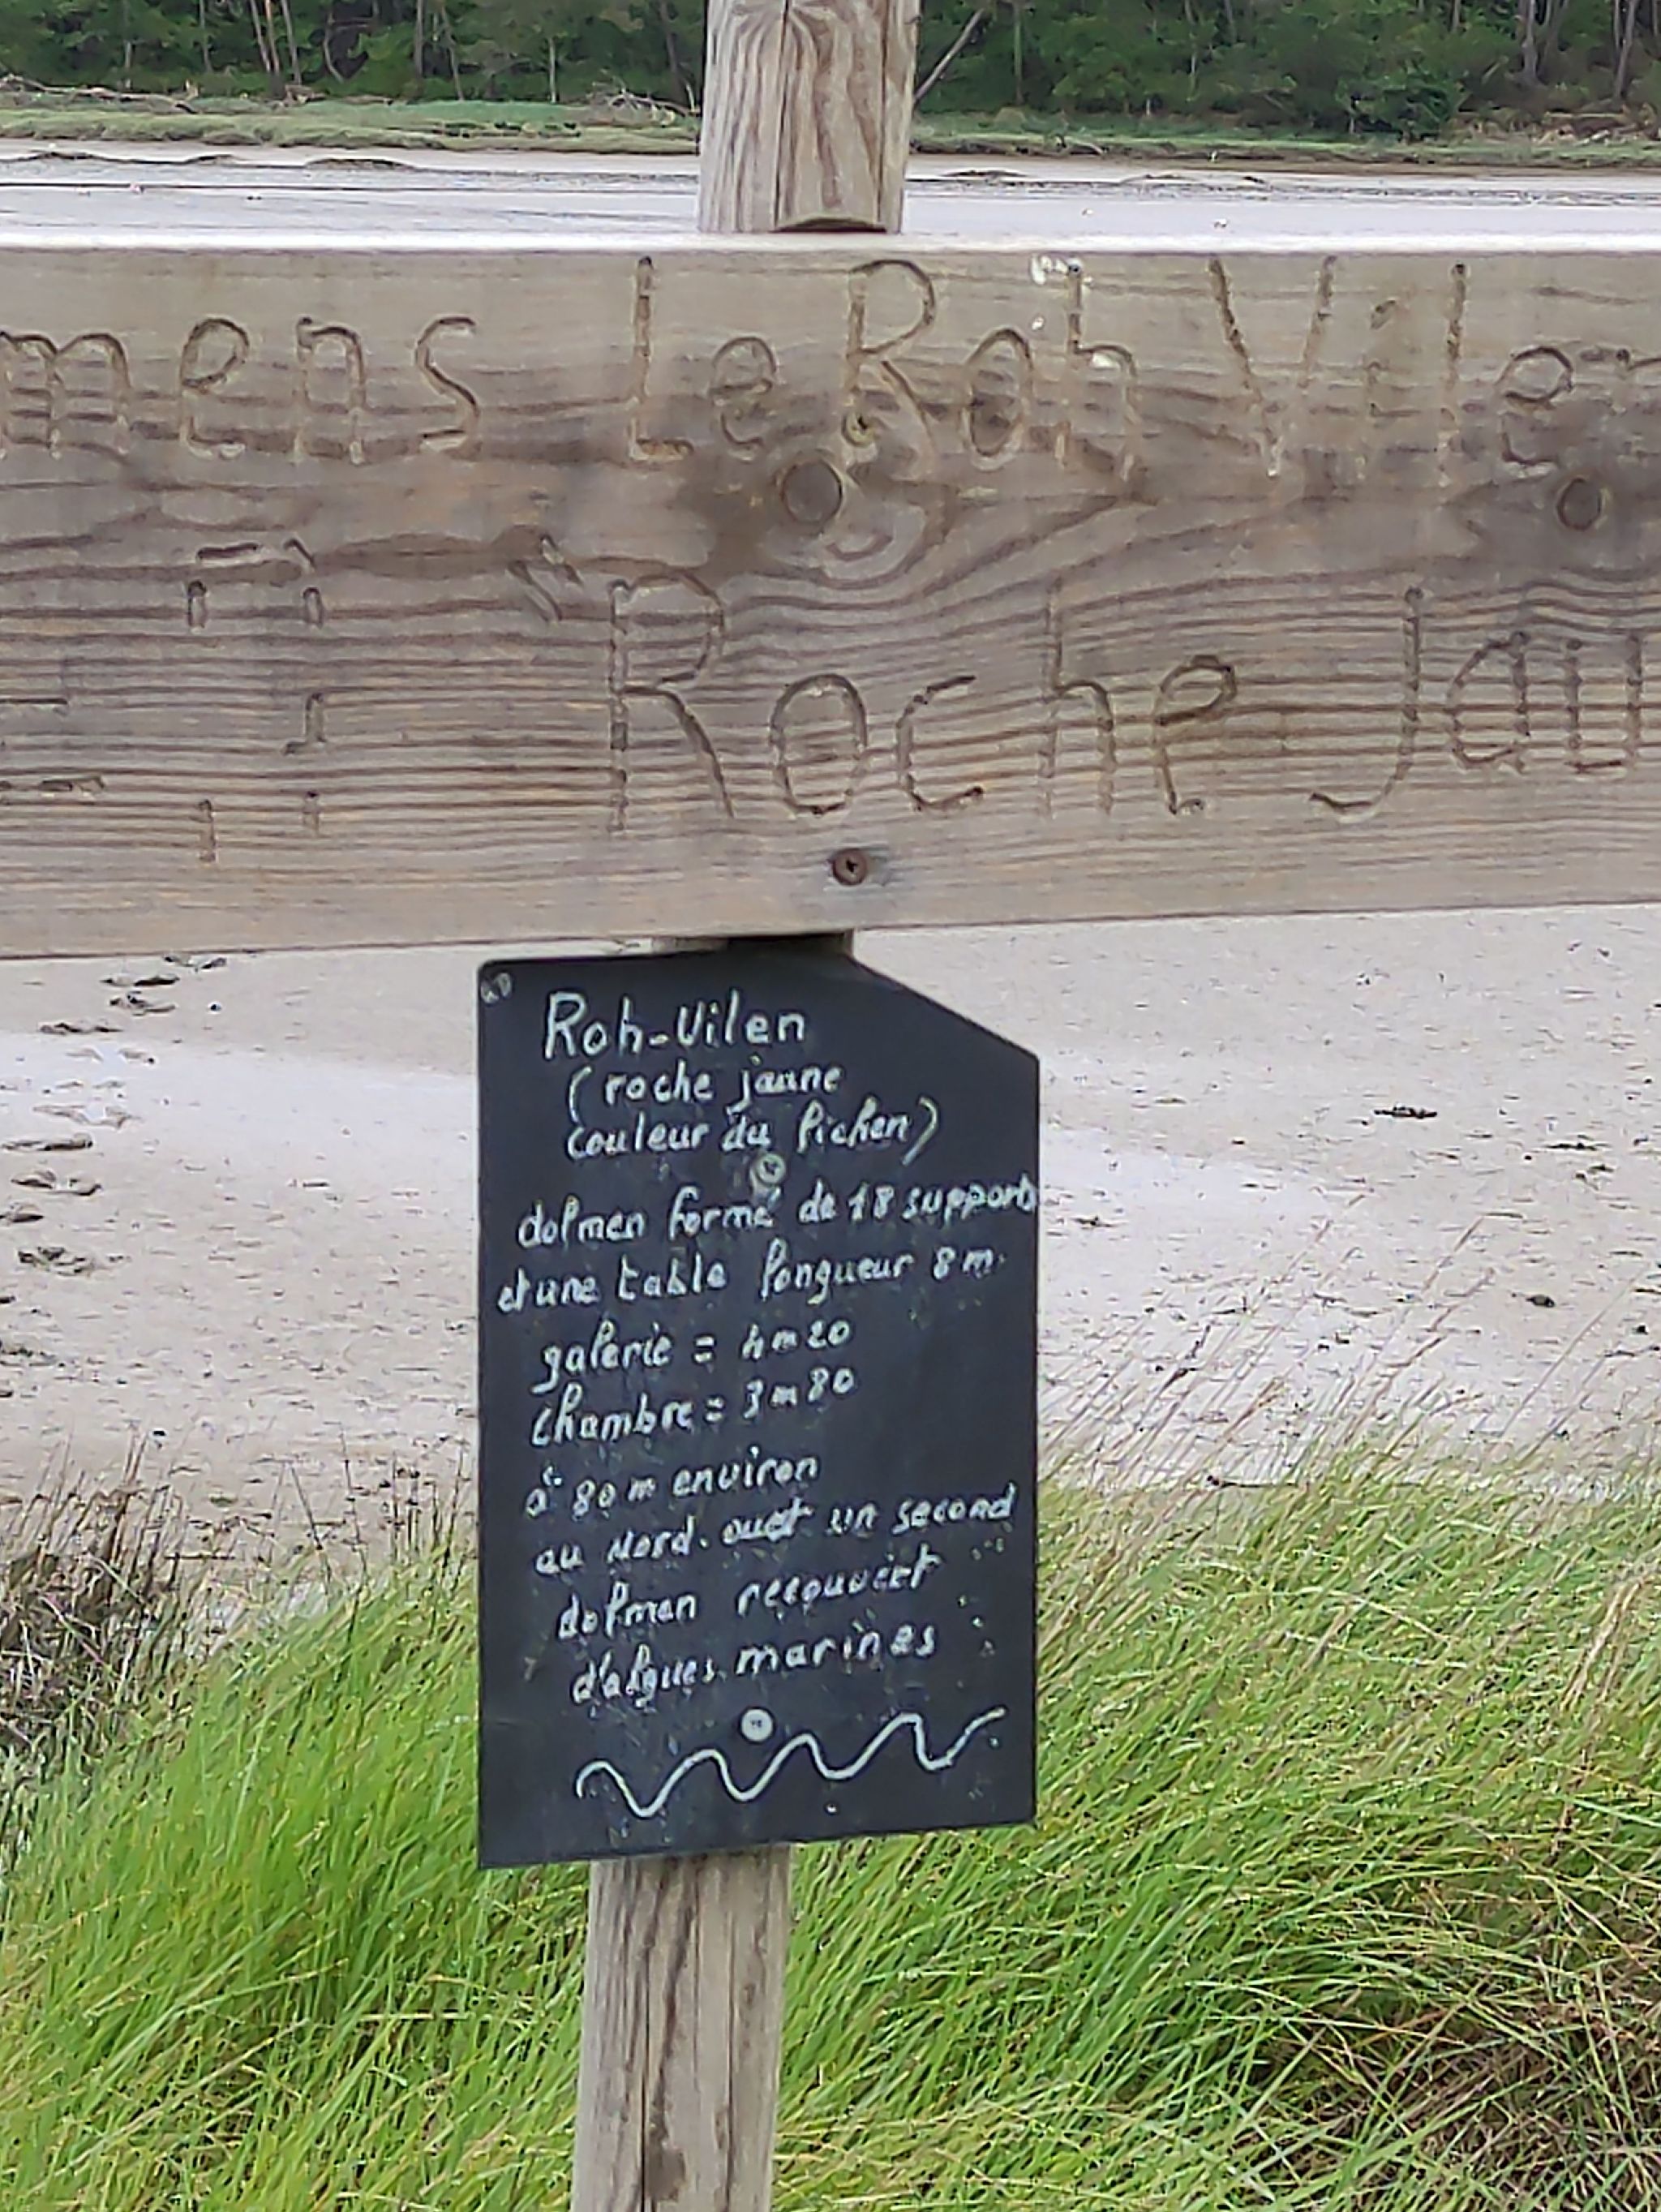 mens Le Roh Vilen
"Roche Jau
Roh-Vilen
(roche jaune
couleur du lichen)
dolmen formé de 18 supports
et une table longueur 8 m.
galerie = 4m20
chambre = 3m80
à 80 m environ
au Nord-ouest un second
dolmen recouvert
d'algues marines